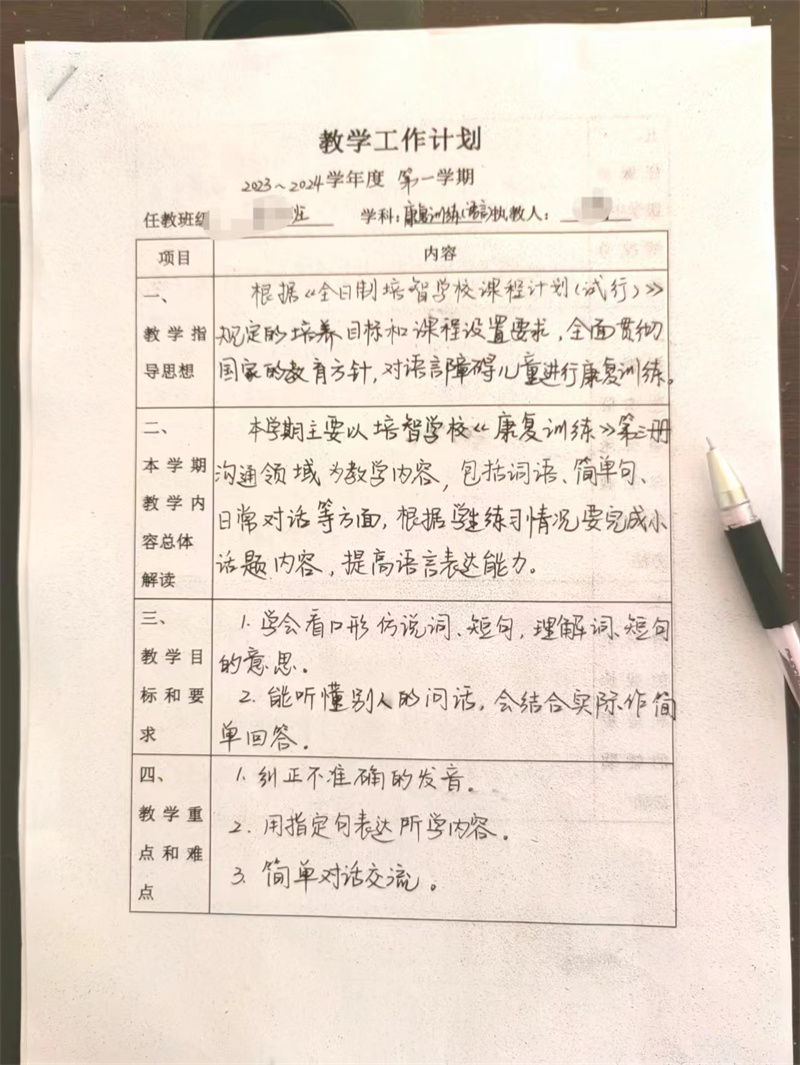 教学工作计划
2023～2024学年度 第一学期
任教班级 学科:康复训练(语言)执教人:
项目 内容
一、
教学指
导思想
根据《全日制培智学校课程计划(试行)》
规定的培养目标和课程设置要求,全面贯彻
国家的教育方针,对语言障碍儿童进行康复训练。
二、
本学期
教学内
容总体
解读
本学期主要以培智学校《康复训练》第三册
沟通领域为教学内容,包括词语、简单句、
日常对话等方面,根据学生练习情况要完成小
话题内容,提高语言表达能力。
三、
教学目
标和要
求
1.学会看口形仿说词、短句,理解词、短句
的意思。
2.能听懂别人的问话,会结合实际作简
单回答。
四、
教学重
点和难
点
1.纠正不准确的发音。
2.用指定句表达所学内容。
3.简单对话交流。